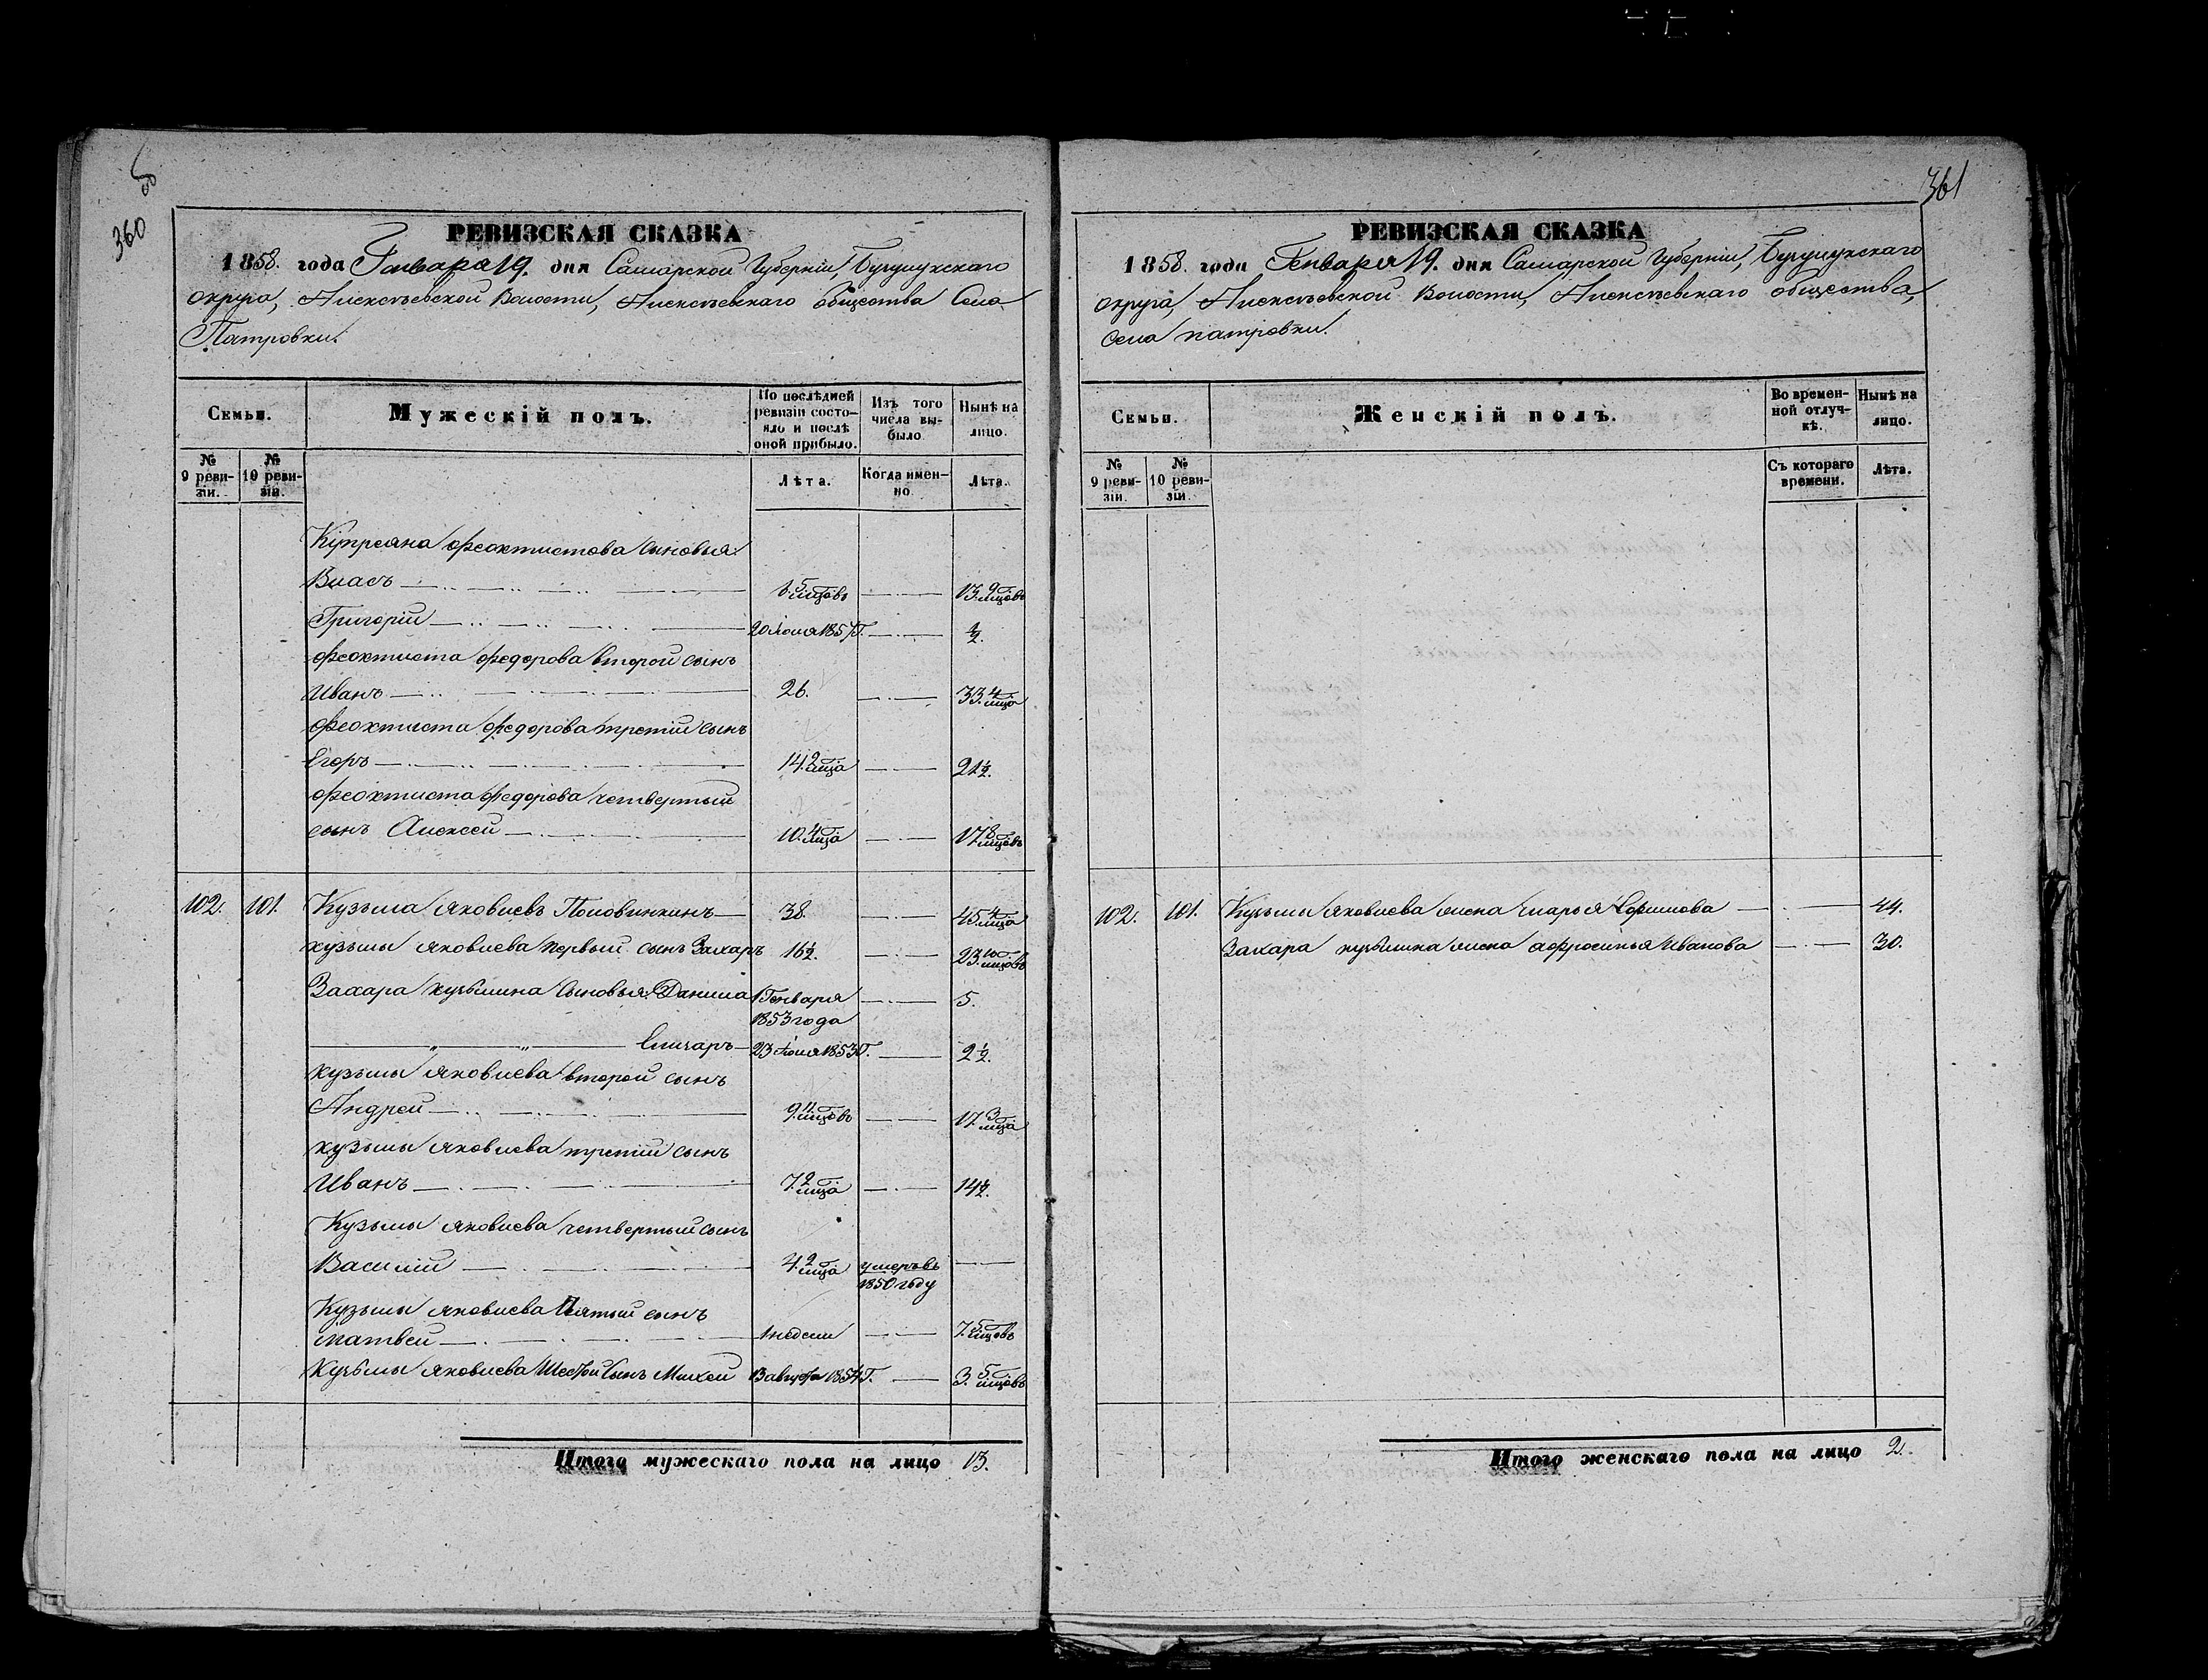 360
361
РЕВИЗСКАЯ СКАЗКА
1858. года Генваря 19. дня Самарской Губерніи, Бузулукскаго
округа, Алексѣевской Волости, Алексѣевскаго Общества Села
Патровки.
Семьи.
Мужескій полъ.
По послѣдней ревизіи состо-
яло и послѣ оной прибыло.
Изъ того числа вы-
было.
Нынѣ на лицо.
№ 9 реви-
зіи.
№ 10 реви-
зіи.
Лѣта.
Когда имен-
но.
Лѣта.
Купреяна Феоктистова сыновья:
Власъ 1. 5 мцовъ 13. 9 мцовъ
Григорій 20 Іюля 1857 Г. ½.
Феоктиста Федорова второй сынъ
Иванъ 26. 33. 4 мца
Феоктиста Федорова третій сынъ
Егоръ 14. 2 мца 21½.
Феоктиста Федорова четвертый
сынъ Алексей 10. 4 мца 17. 8 мцовъ
102. 101. Кузьма Яковлевъ Половинкинъ 38. 45. 4 мца
Кузьмы Яковлева первый сынъ Захаръ 16½. 23. 10 мцовъ
Захара Кузьмина Сыновья: Данила 1 Генваря 5.
1853 года
Елизаръ 23 Іюля 1853 Г. 2½.
Кузьмы Яковлева второй сынъ
Андрей 9. 11 мцовъ 17. 3 мца
Кузьмы Яковлева третій сынъ
Иванъ 7. 2 мца 14½.
Кузьмы Яковлева четвертый сынъ
Василій 4. 2 мца умеръ въ
1850 году
Кузьмы Яковлева Пятый сынъ
Матвей 1 недели 7. 5 мцовъ
Кузьмы Яковлева Шестой Сынъ Михей 13 августа 1854 Г. 3. 5 мцовъ
Итого мужескаго пола на лицо 13.
РЕВИЗСКАЯ СКАЗКА
1858. года Генваря 19. дня Самарской Губерніи, Бузулукскаго
округа, Алексѣевской Волости, Алексѣевскаго общества,
Села патровки.
Семьи.
Женскій полъ.
Во времен-
ной отлуч-
кѣ.
Нынѣ на лицо.
№ 9 реви-
зіи.
№ 10 реви-
зіи.
Съ котораго времени.
Лѣта.
102. 101. Кузьмы Яковлева жена Марья Ефимова 44.
Захара кузьмина жена афросинья Иванова 30.
Итого женскаго пола на лицо 2.